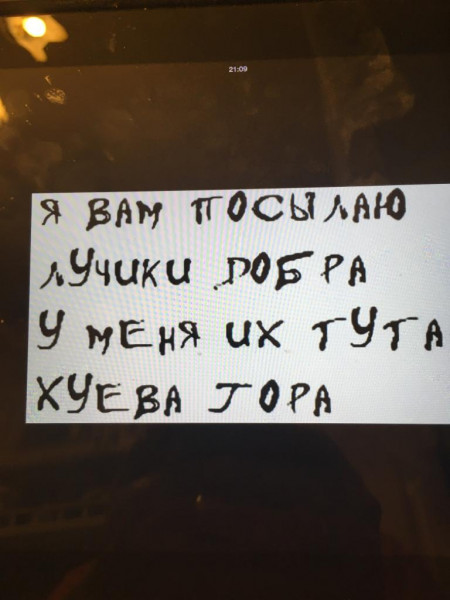 21:09
Я ВАМ ПОСЫЛАЮ
ЛУЧИКИ ДОБРА
У МЕНЯ ИХ ТУТА
ХУЕВА ГОРА